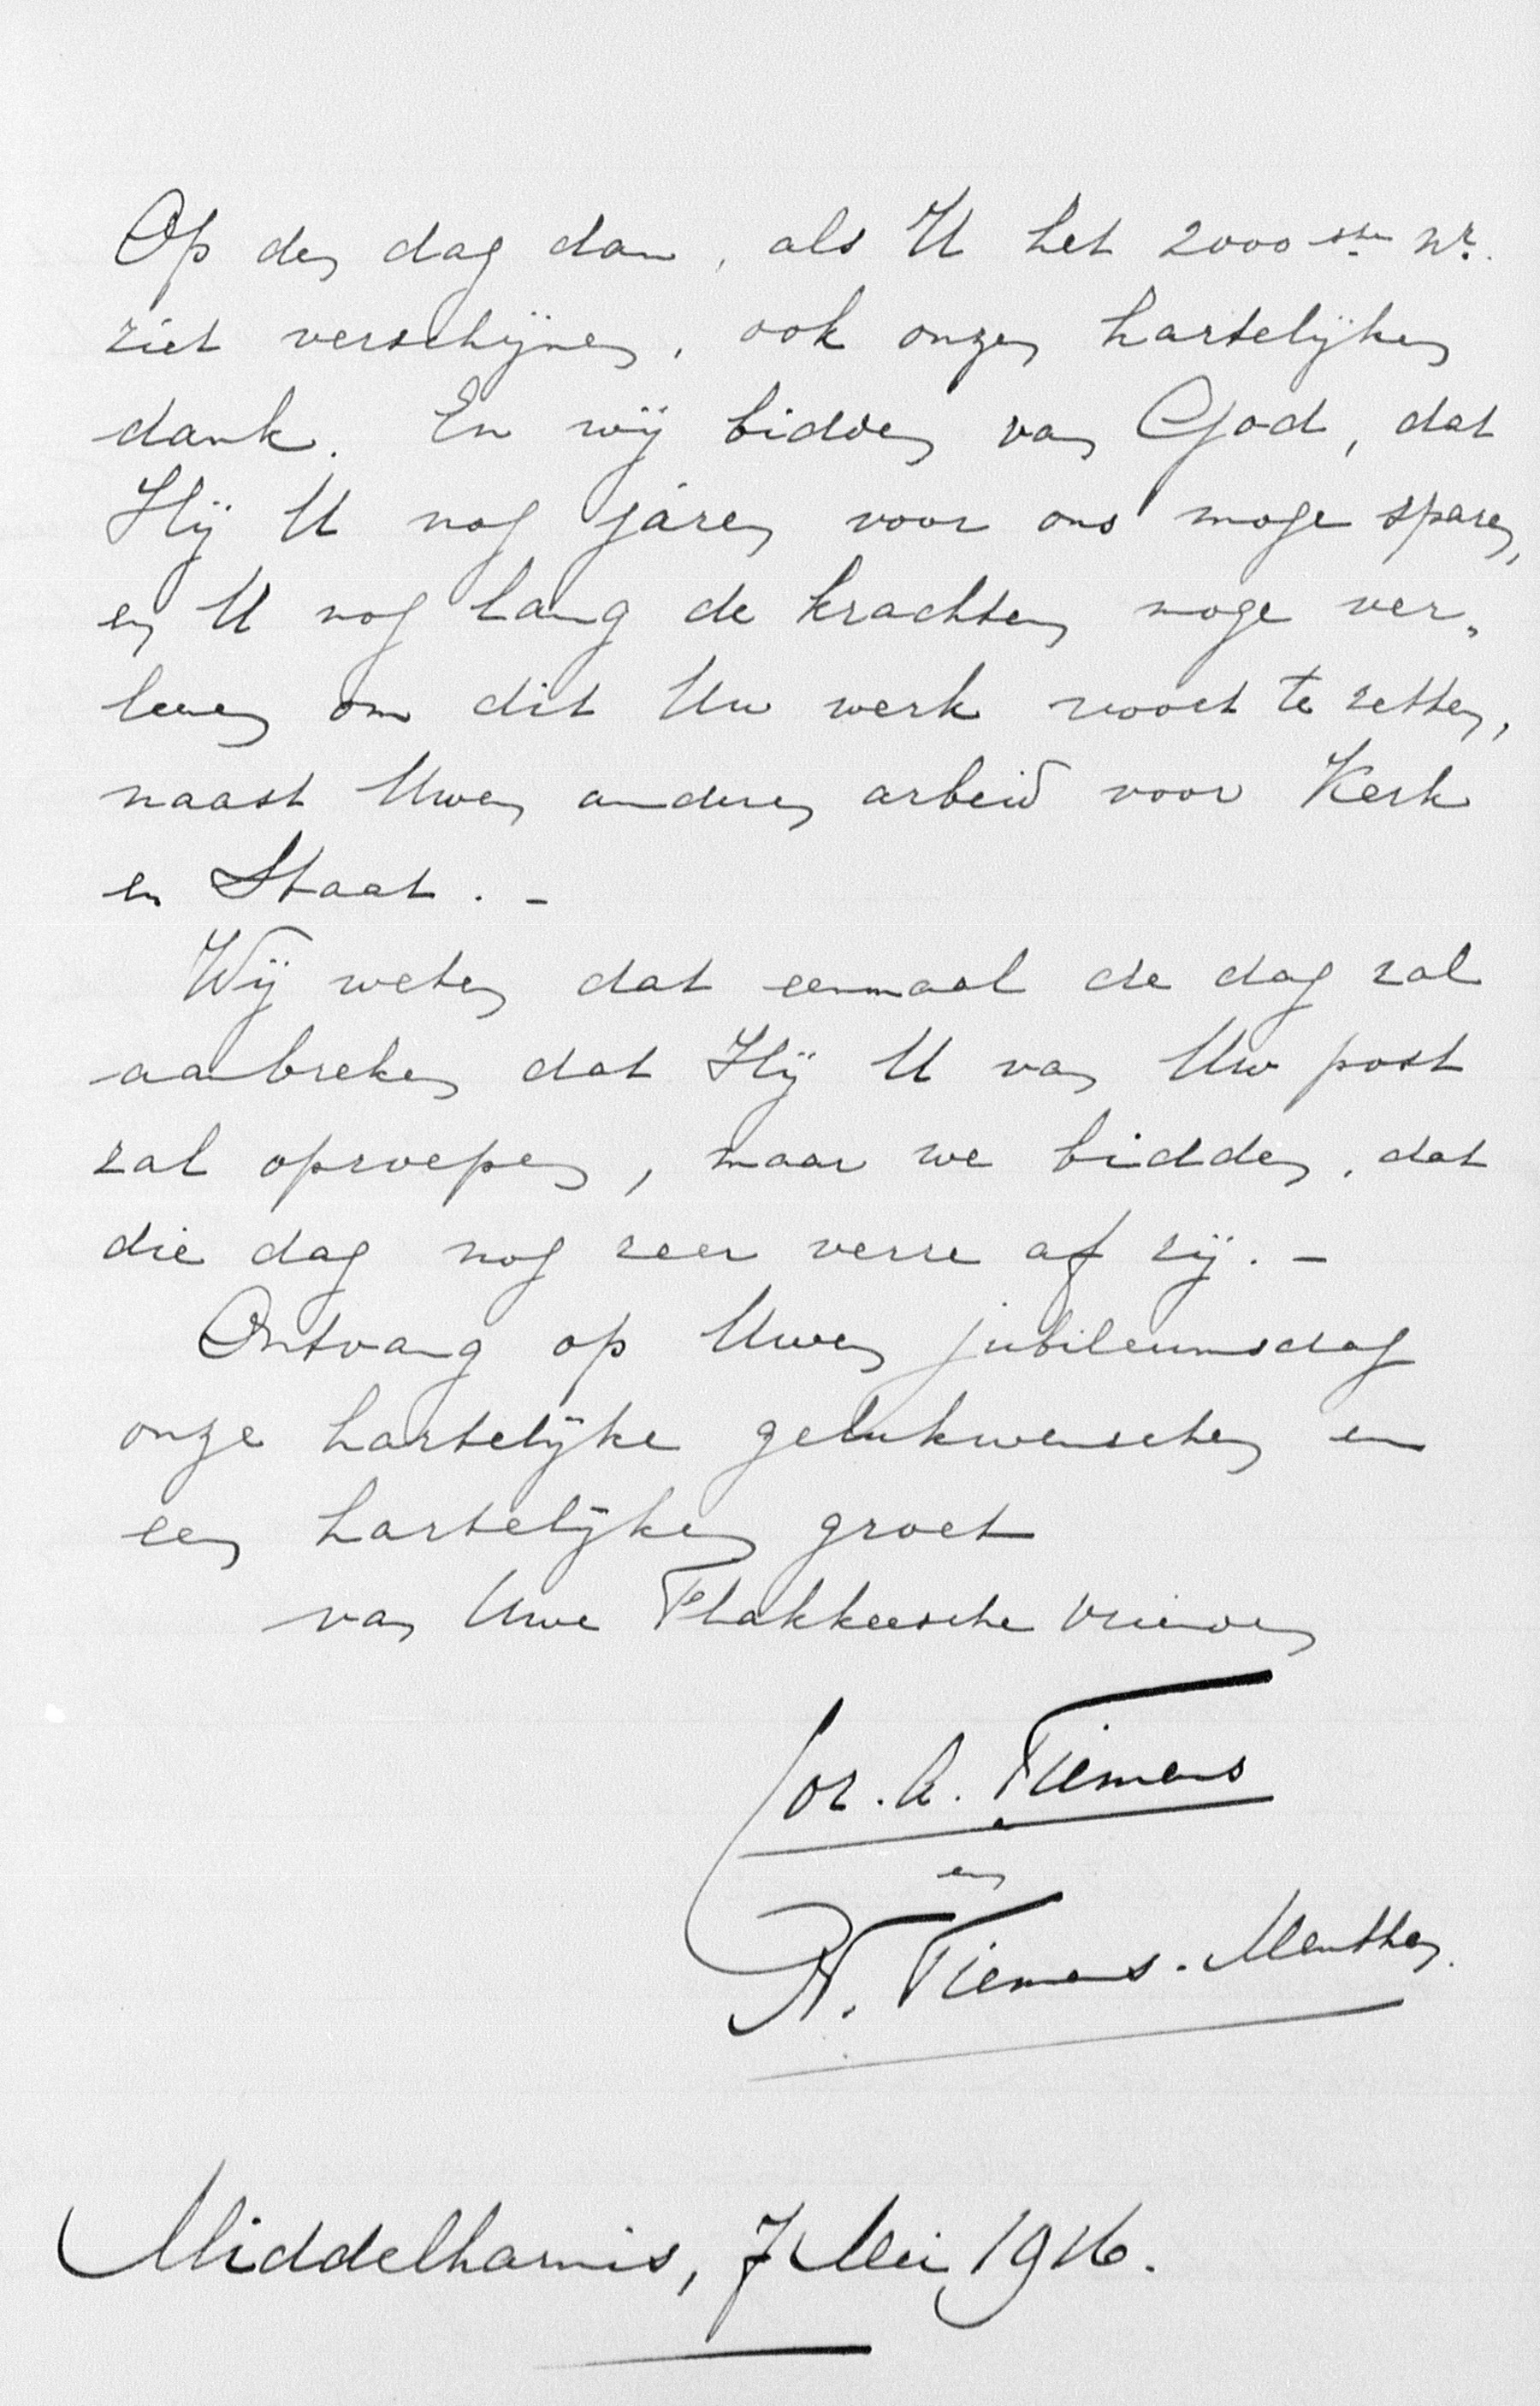 Op den dag dan, als U het 2000ste Nr.
ziet verschijnen, ook onzen hartelijken
dank. En wij bidden van God, dat
Hij U nog járen voor ons moge sparen,
en U nog lang de krachten moge ver„
leenen om dit Uw werk voort te zetten,
naast Uwen anderen arbeid voor Kerk
en Staat. -
Wij weten dat eenmaal de dag zal
aanbreken dat Hij U van Uw post
zal oproepen, maar we bidden, dat
die dag nog zeer verre af zij. -
Ontvang op Uwen jubileumsdag
onze hartelijke gelukwenschen en
een hartelijken groet
van Uwe Flakkeesche vrienden
Joz. A. Tiemens
en
N. Tiemens-Menthen.
Middelharnis, 7 Mei 1916.